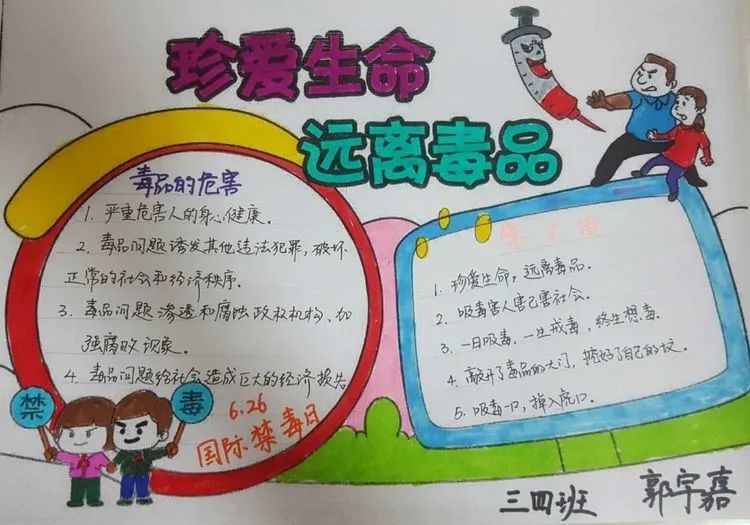 珍爱生命
远离毒品
毒品的危害
1. 严重危害人的身心健康。
2. 毒品问题诱发其他违法犯罪，破坏
正常的社会和经济秩序。
3. 毒品问题渗透和腐蚀政权机构、加
强腐败现象。
4. 毒品问题给社会造成巨大的经济损
禁
毒
6.26
国际禁毒日
1. 珍爱生命，远离毒品。
2. 吸毒害人害己害社会。
3. 一日吸毒，一生戒毒，终生想毒。
4. 敲开了毒品的大门，挖好了自己的坟。
5. 吸毒一口，掉入虎口。
三四班 郭宇嘉